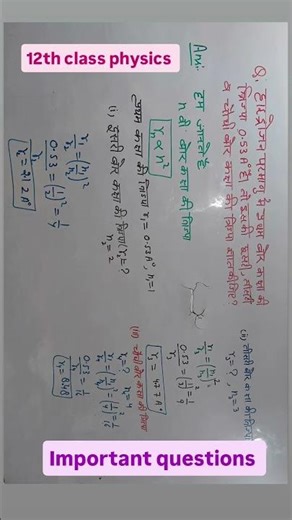 12th class physics
Q. हाइड्रोजन परमाणु में प्रथम बोर कक्षा की
त्रिज्या 0.53 A° है, तो इसकी दूसरी, तीसरी
व चौथी बोर कक्षा की त्रिज्या ज्ञात कीजिए?
Ans: हम जानते हैं
n वीं बोर कक्षा की त्रिज्या
rₙ ∝ n²
प्रथम कक्षा की त्रिज्या r₁ = 0.53A°, n₁=1
(i) दूसरी बोर कक्षा की त्रिज्या r₂=?
n₂=2
r₁/r₂ = (n₁/n₂)²
0.53/r₂ = (1/2)² = 1/4
r₂ = 2.12A°
(ii) तीसरी बोर कक्षा की त्रिज्या
r₃=?, n₃=3
r₁/r₃ = (n₁/n₃)²
0.53/r₃ = (1/3)² = 1/9
r₃ = 4.77A°
(iii) चौथी बोर कक्षा की त्रिज्या
r₄=? n₄=4
r₁/r₄ = (n₁/n₄)² = (1/4)² = 1/16
0.53/r₄ = 1/16
r₄=8.48
Important questions